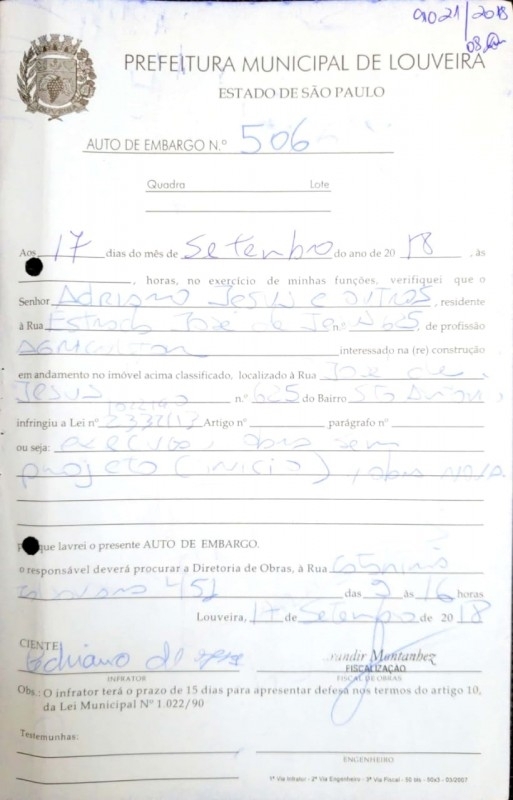 9021/2018
08
PREFEITURA MUNICIPAL DE LOUVEIRA
ESTADO DE SÃO PAULO
AUTO DE EMBARGO N.º 506
Quadra Lote
Aos 17 dias do mês de Setembro do ano de 2018, às
, horas, no exercício de minhas funções, verifiquei que o
Senhor Adriano Jesus e outros, residente
à Rua Estrada José de n.º 625 de profissão
Agricultor interessado na (re) construção
em andamento no imóvel acima classificado, localizado à Rua José de
Jesus n.º 625 do Bairro Sto Antonio,
infringiu a Lei nº 2332/13 Artigo nº parágrafo nº
ou seja: execução obra sem
projeto (inicio), obra nova.
que lavrei o presente AUTO DE EMBARGO.
o responsável deverá procurar a Diretoria de Obras, à Rua
451 das 9 às 16 horas
Louveira, 17 de Setembro de 2018
CIENTE
Adriano de
Jandir Montanhez
FISCALIZAÇÃO
INFRATOR FISCAL DE OBRAS
Obs.: O infrator terá o prazo de 15 dias para apresentar defesa nos termos do artigo 10,
da Lei Municipal Nº 1.022/90
Testemunhas:
ENGENHEIRO
1ª Via Infrator - 2ª Via Engenheiro - 3ª Via Fiscal - 50 bls - 50x3 - 03/2007